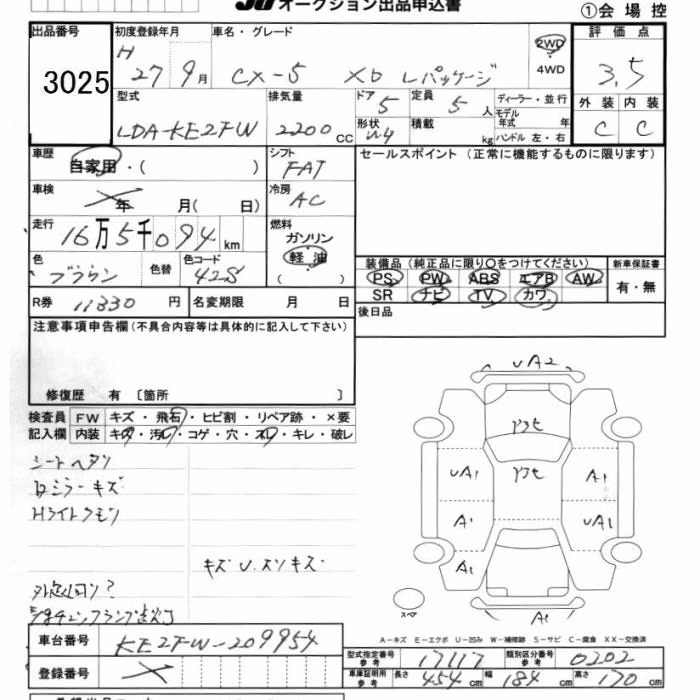 オークション出品申込書
①会場控
出品番号
3025
初度登録年月
H 27 9月
車名・グレード
CX-5 XD Lパッケージ
2WD
4WD
評価点
3.5
外装 内装
C C
型式
LDA-KE2FW
排気量
2200cc
ドア 5
定員 5人
ディーラー・並行
形状 W4
積載 kg
モデル年式 年
ハンドル 左・右
車歴
自家用・( )
シフト
FAT
セールスポイント (正常に機能するものに限ります)
車検
年 月( 日)
冷房
AC
走行
16万5千094km
燃料
ガソリン
軽油
( )
色
ブラウン
色替
色コード
42S
装備品(純正品に限り○をつけてください)
PS PW ABS エアB AW
SR ナビ TV カワ
新車保証書
有・無
R券 11330円
名変期限 月 日
後日品
注意事項申告欄(不具合内容等は具体的に記入して下さい)
修復歴 有 〔箇所 〕
検査員 FW キズ・飛石・ヒビ割・リペア跡・×要
記入欄 内装 キズ・汚レ・コゲ・穴・スレ・キレ・破レ
シートヘタリ
Dミラーキズ
Hライトクモリ
キズU.スリキズ
UA2
UA1
A1
A1
A1
UA1
A1
スペア
A-キズ E-エクボ U-凹み W-補修跡 S-サビ C-腐食 XX-交換済
車台番号
KE2FW-209954
登録番号
型式指定番号 参考 17117
類別区分番号 参考 0202
車庫証明用 参考 長さ 454cm 幅 184cm 高さ 170cm